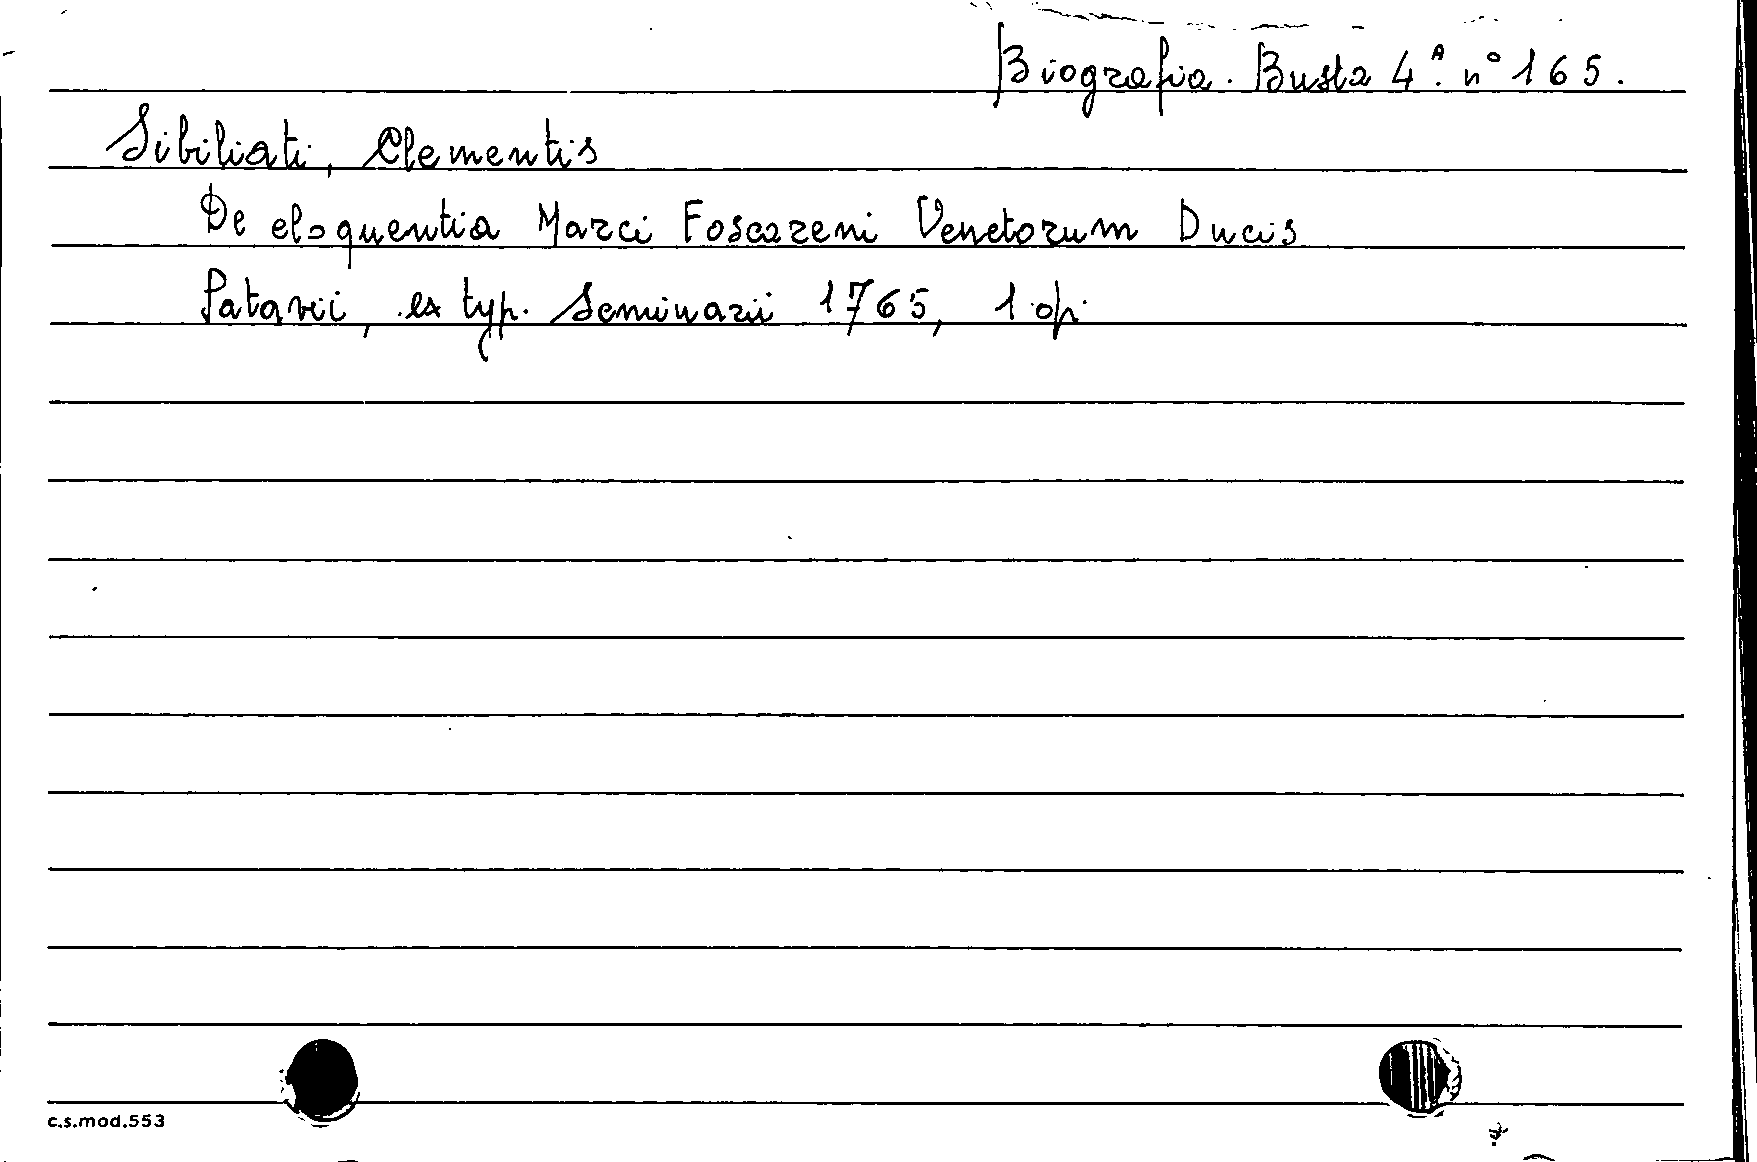 Biografia. Busta 4ᴬ. n° 165.
Sibiliati, Clementis
De eloquentia Marci Foscareni Venetorum Ducis
Patavii, ex typ. Seminarii 1765, 1 op.
c.s.mod.553